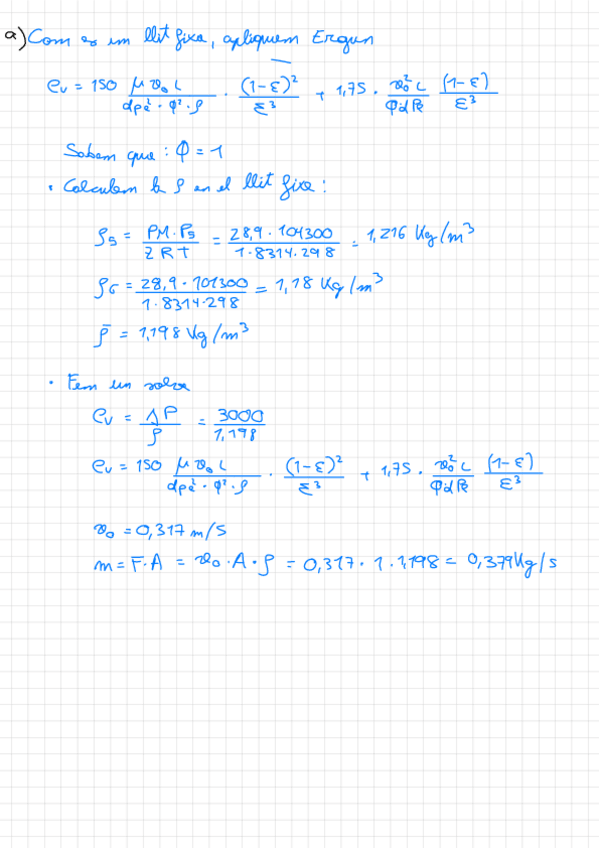 a) Com es un llit fixe, apliquem Ergun
ev = 150 μ v₀ L / (dpe² · φ² · ρ) · (1-ε)² / ε³ + 1,75 · v₀² L / (φ dpe) (1-ε) / ε³
Sabem que : φ = 1
· Calculem la ρ en el llit fixe :
ρ5 = PM · P5 / Z R T = 28,9 · 104300 / 1 · 8314 · 298 = 1,216 Kg/m³
ρ6 = 28,9 · 101300 / 1 · 8314 · 298 = 1,18 Kg/m³
ρ̄ = 1,198 Kg/m³
· Fem un solve
ev = ΔP / ρ = 3000 / 1,198
ev = 150 μ v₀ L / (dpe² · φ² · ρ) · (1-ε)² / ε³ + 1,75 · v₀² L / (φ dpe) (1-ε) / ε³
v₀ = 0,317 m/s
m = F · A = v₀ · A · ρ = 0,317 · 1 · 1,198 = 0,379 Kg/s